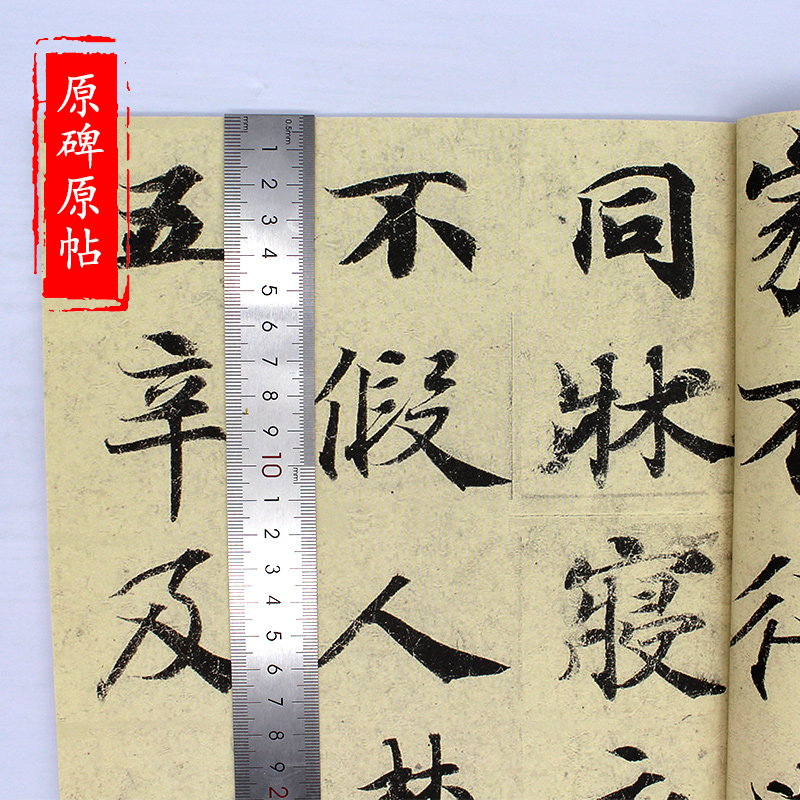 原碑原帖
不
同牀寢
不假人
五辛及
mm
0.5mm
1 2 3 4 5 6 7 8 9 10 1 2 3 4 5 6 7 8 9
mm